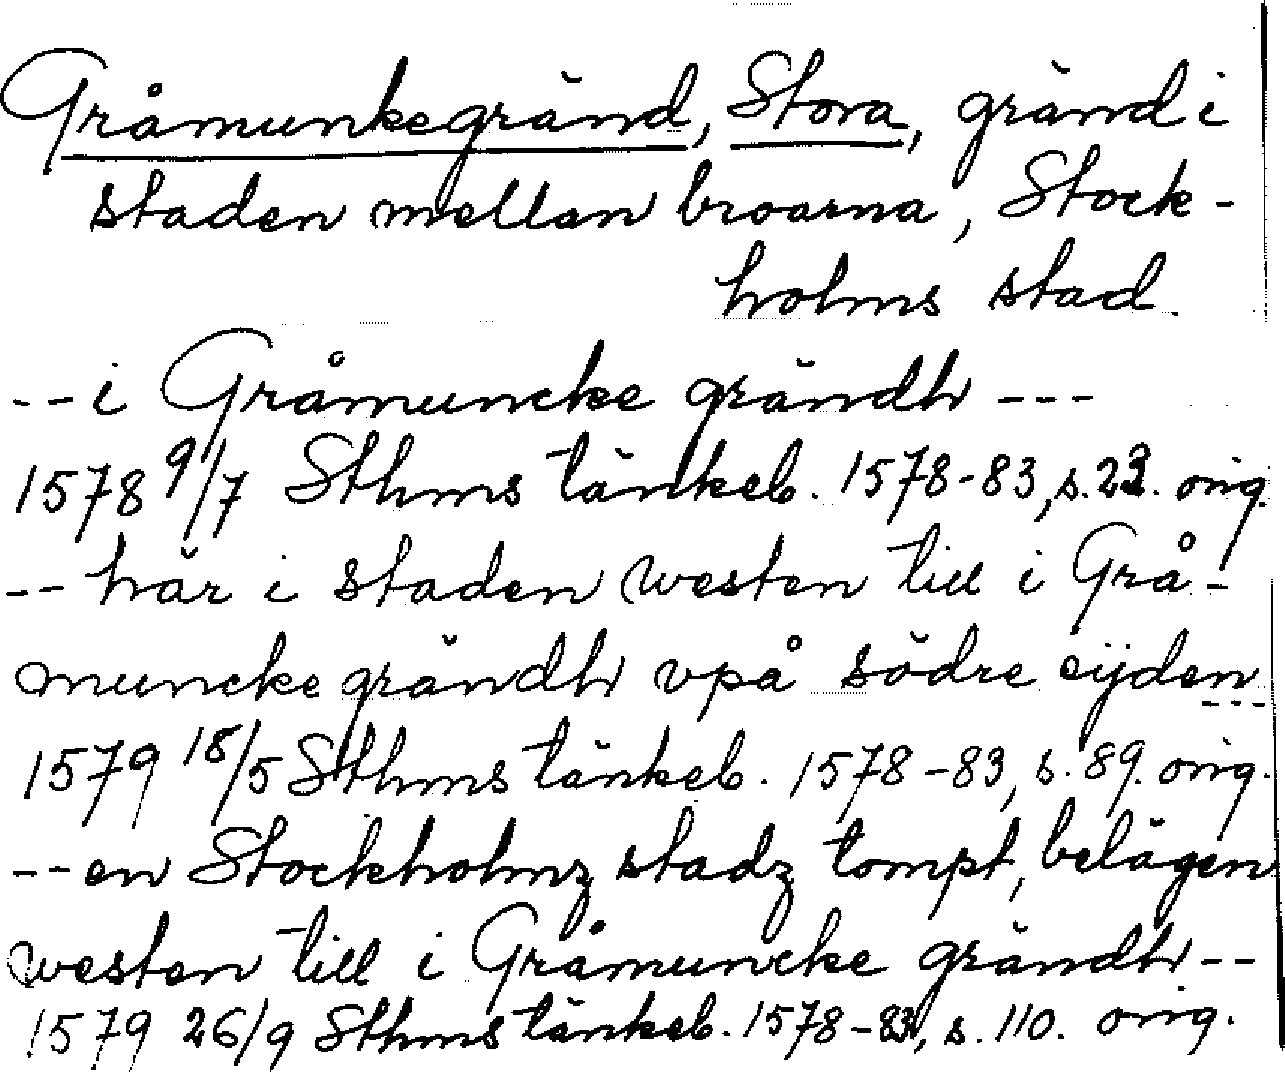 Gråmunkegränd, Stora, gränd i
staden mellan broarna, Stock-
holms stad.
-- i Gråmuncke grändh ---
1578 9/7 Sthms tänkeb. 1578-83, s. 23. orig.
-- här i staden westen till i Grå-
muncke grändh vpå södre sijden ---
1579 18/5 Sthms tänkeb. 1578-83, s. 89. orig.
-- en Stockholmz stadz tompt, belägen
westen till i Gråmuncke grändh --
1579 26/9 Sthms tänkeb. 1578-83, s. 110. orig.